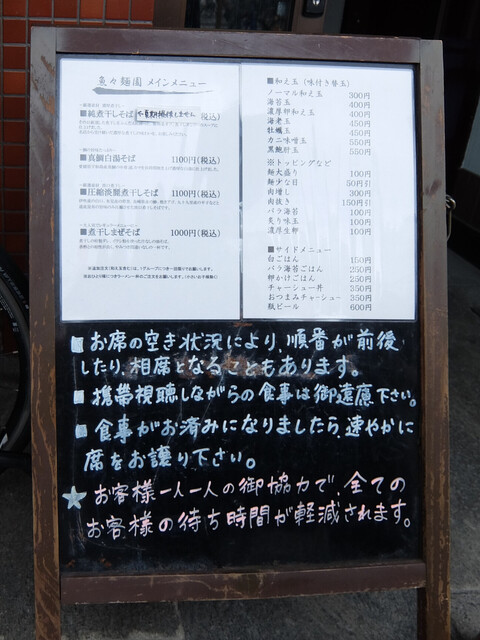 魚々麺園 メインメニュー
■純煮干しそば
税込)
■真鯛白湯そば 1100円(税込)
■圧縮淡麗煮干しそば 1100円(税込)
■煮干しまぜそば 1000円(税込)
■和え玉(味付き替玉)
ノーマル和え玉 300円
海苔玉 400円
濃厚卵和え玉 400円
海老玉 450円
牡蠣玉 450円
カニ味噌玉 550円
黒鮑肝玉 550円
※トッピングなど
麺大盛り 100円
麺少な目 50円引
肉増し 300円
肉抜き 150円引
バラ海苔 100円
炙り味玉 100円
濃厚生卵 100円
■サイドメニュー
白ごはん 150円
バラ海苔ごはん 250円
卵かけごはん 250円
チャーシュー丼 350円
おつまみチャーシュー 350円
瓶ビール 600円
■お席の空き状況により、順番が前後
したり、相席となることもあります。
■携帯視聴しながらの食事は御遠慮下さい。
■食事がお済みになりましたら、速やかに
席をお譲り下さい。
★お客様一人一人の御協力で、全ての
お客様の待ち時間が軽減されます。